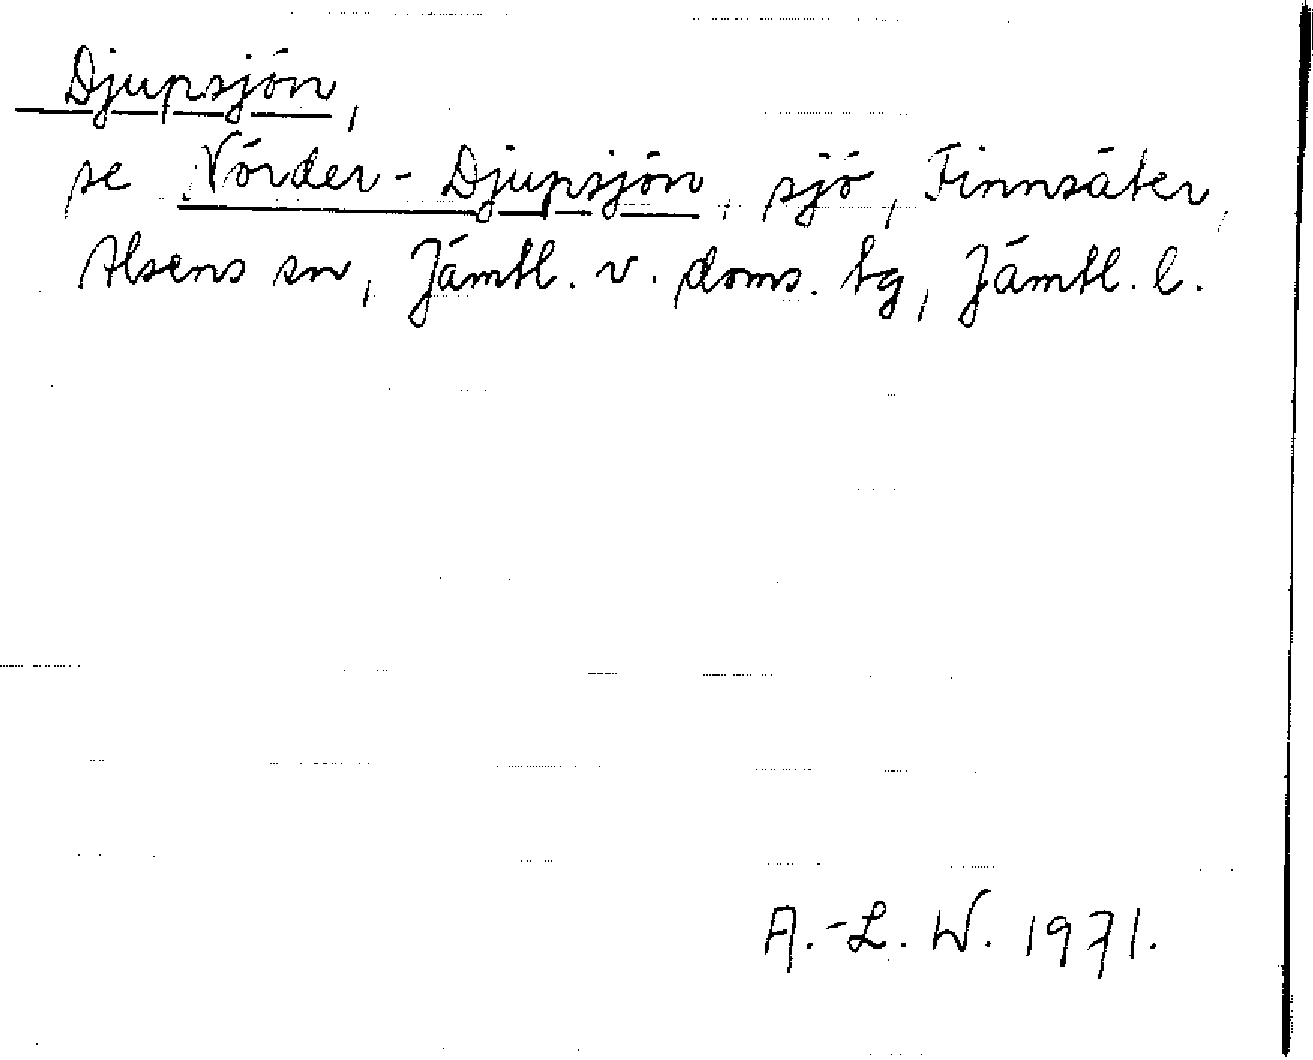 Djupsjön,
se Nörder-Djupsjön, sjö, Finnsäter,
Alsens sn, Jämtl. v. doms. tg, Jämtl. l.
A.-L. W. 1971.